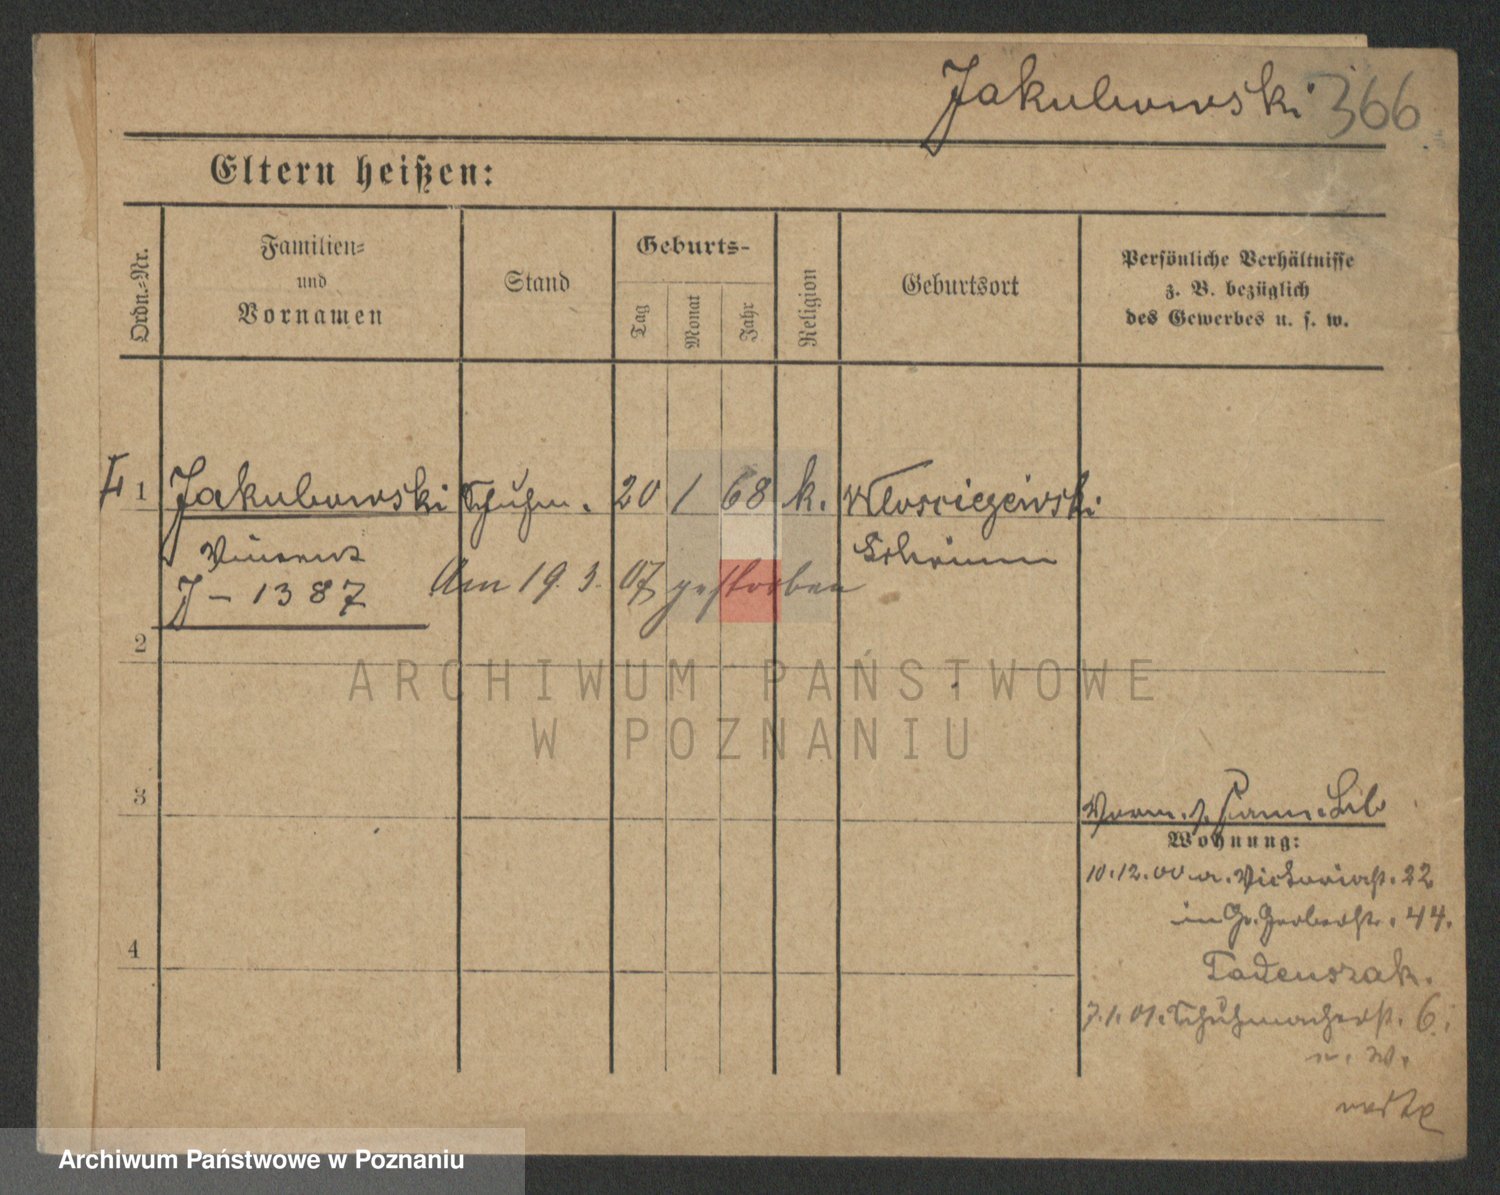 Jakubowski 366
Eltern heißen:
Ordn.-Nr.
Familien-
und
Vornamen
Stand
Geburts-
Tag
Monat
Jahr
Religion
Geburtsort
Persönliche Verhältnisse
z. B. bezüglich
des Gewerbes u. s. w.
1 Jakubowski Schuhm. 20 1 68 k. Wlosciejewski
Vincent Schrimm
J - 1387 Am 19. 3. 07 gestorben
2
ARCHIWUM PAŃSTWOWE
W POZNANIU
3
Wohnung:
10.12.00 a. Victoriast. 22
in Gr. Gerberstr. 44.
Tadeuszak.
7.1.01. Schuhmacherst. 6.
4
Archiwum Państwowe w Poznaniu